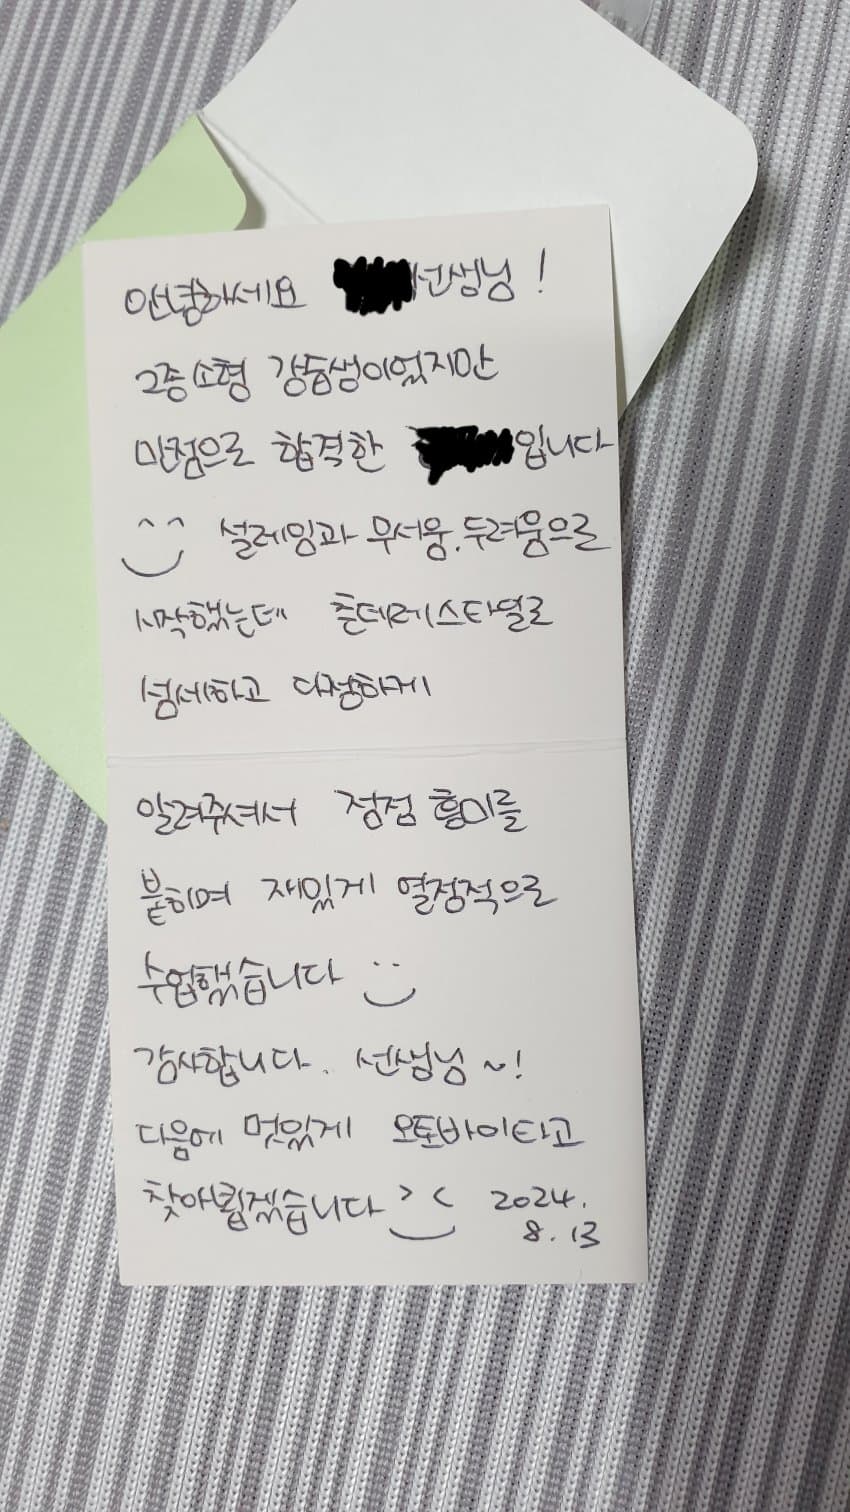 안녕하세요 선생님!
2종소형 강등생이었지만
만점으로 합격한 입니다
설레임과 무서움.두려움으로
시작했는데 츤데레스타일로
섬세하고 다정하게
알려주셔서 점점 흥미를
붙히며 재밌게 열정적으로
수업했습니다
감사합니다. 선생님~!
다음에 멋있게 오토바이타고
찾아뵙겠습니다 2024.
8. 13